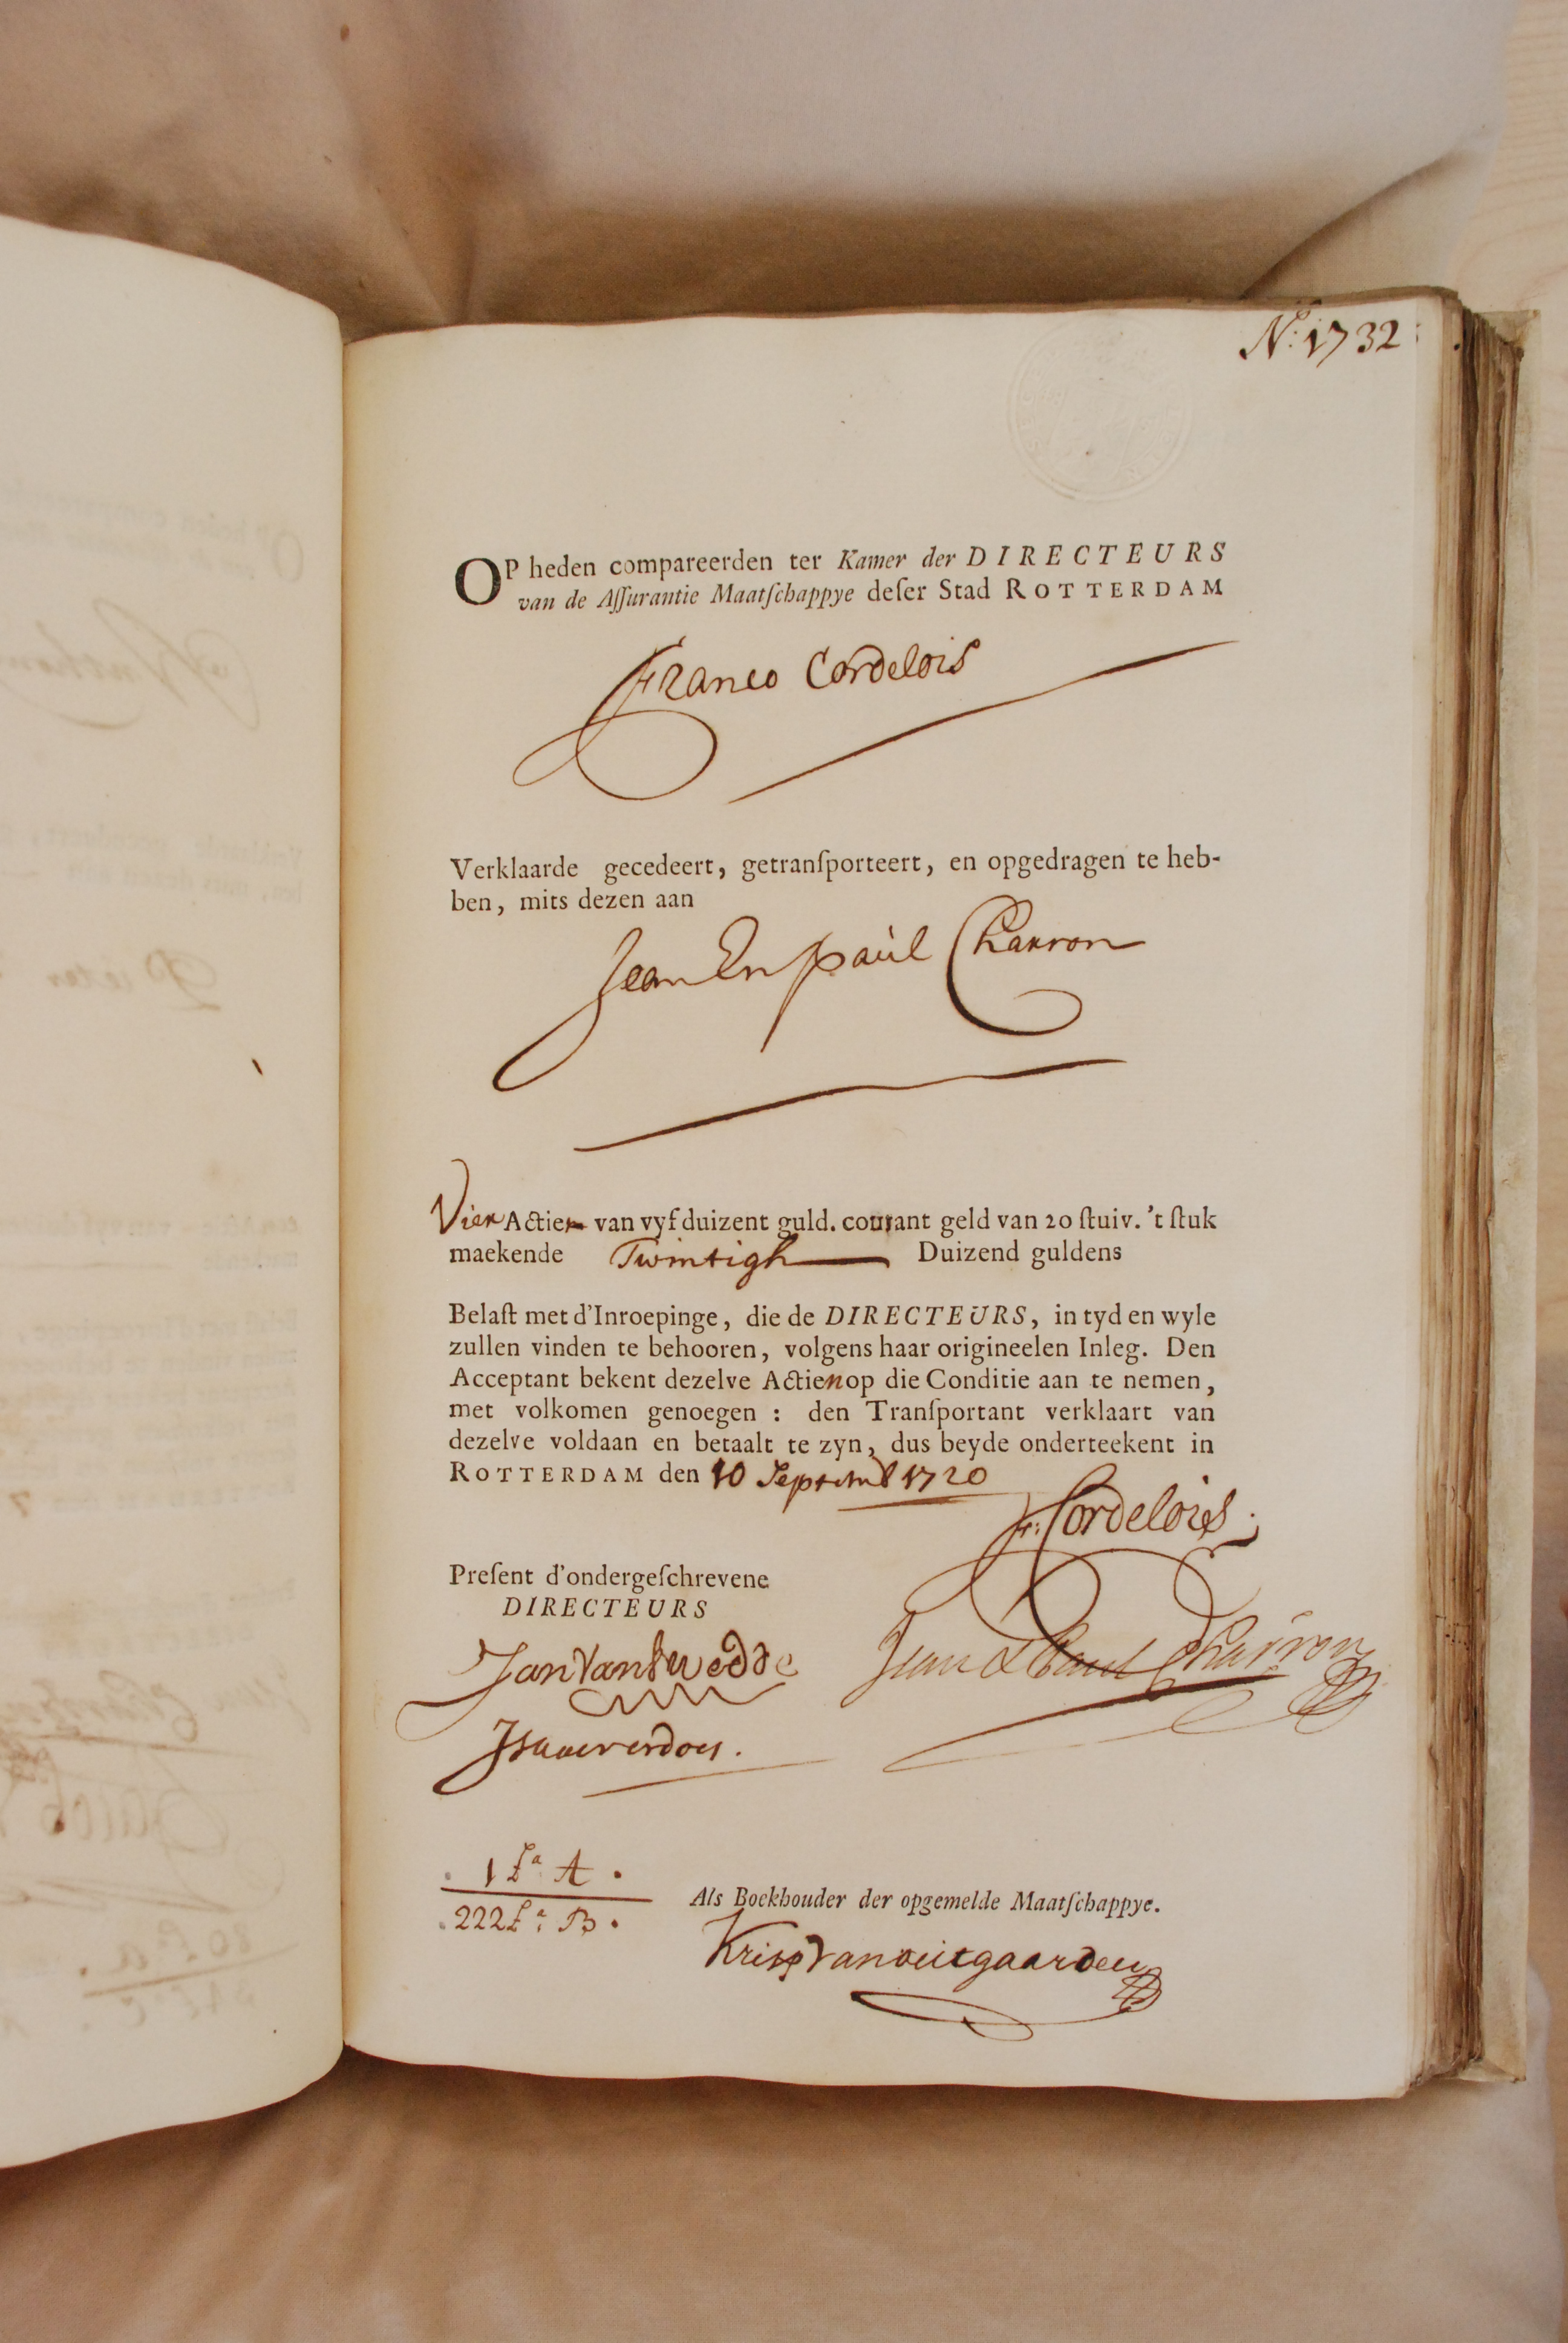 N:o 1732
OP heden compareerden ter Kamer der DIRECTEURS
van de Aſſurantie Maatſchappye deſer Stad ROTTERDAM
Franco Cordelois
Verklaarde gecedeert, getranſporteert, en opgedragen te heb-
ben, mits dezen aan
Jean En paúl Charron
Vier Actien van vyf duizent guld. courant geld van 20 ſtuiv. 't ſtuk
maekende Twintigh Duizend guldens
Belaſt met d'Inroepinge, die de DIRECTEURS, in tyd en wyle
zullen vinden te behooren, volgens haar origineelen Inleg. Den
Acceptant bekent dezelve Actien op die Conditie aan te nemen,
met volkomen genoegen : den Tranſportant verklaart van
dezelve voldaan en betaalt te zyn, dus beyde onderteekent in
ROTTERDAM den 10 Septemb 1720
F: Cordelois
Preſent d'ondergeſchrevene
DIRECTEURS
Jean & Paul Charron
1 La A
222 La: B
Als Boekhouder der opgemelde Maatſchappye.